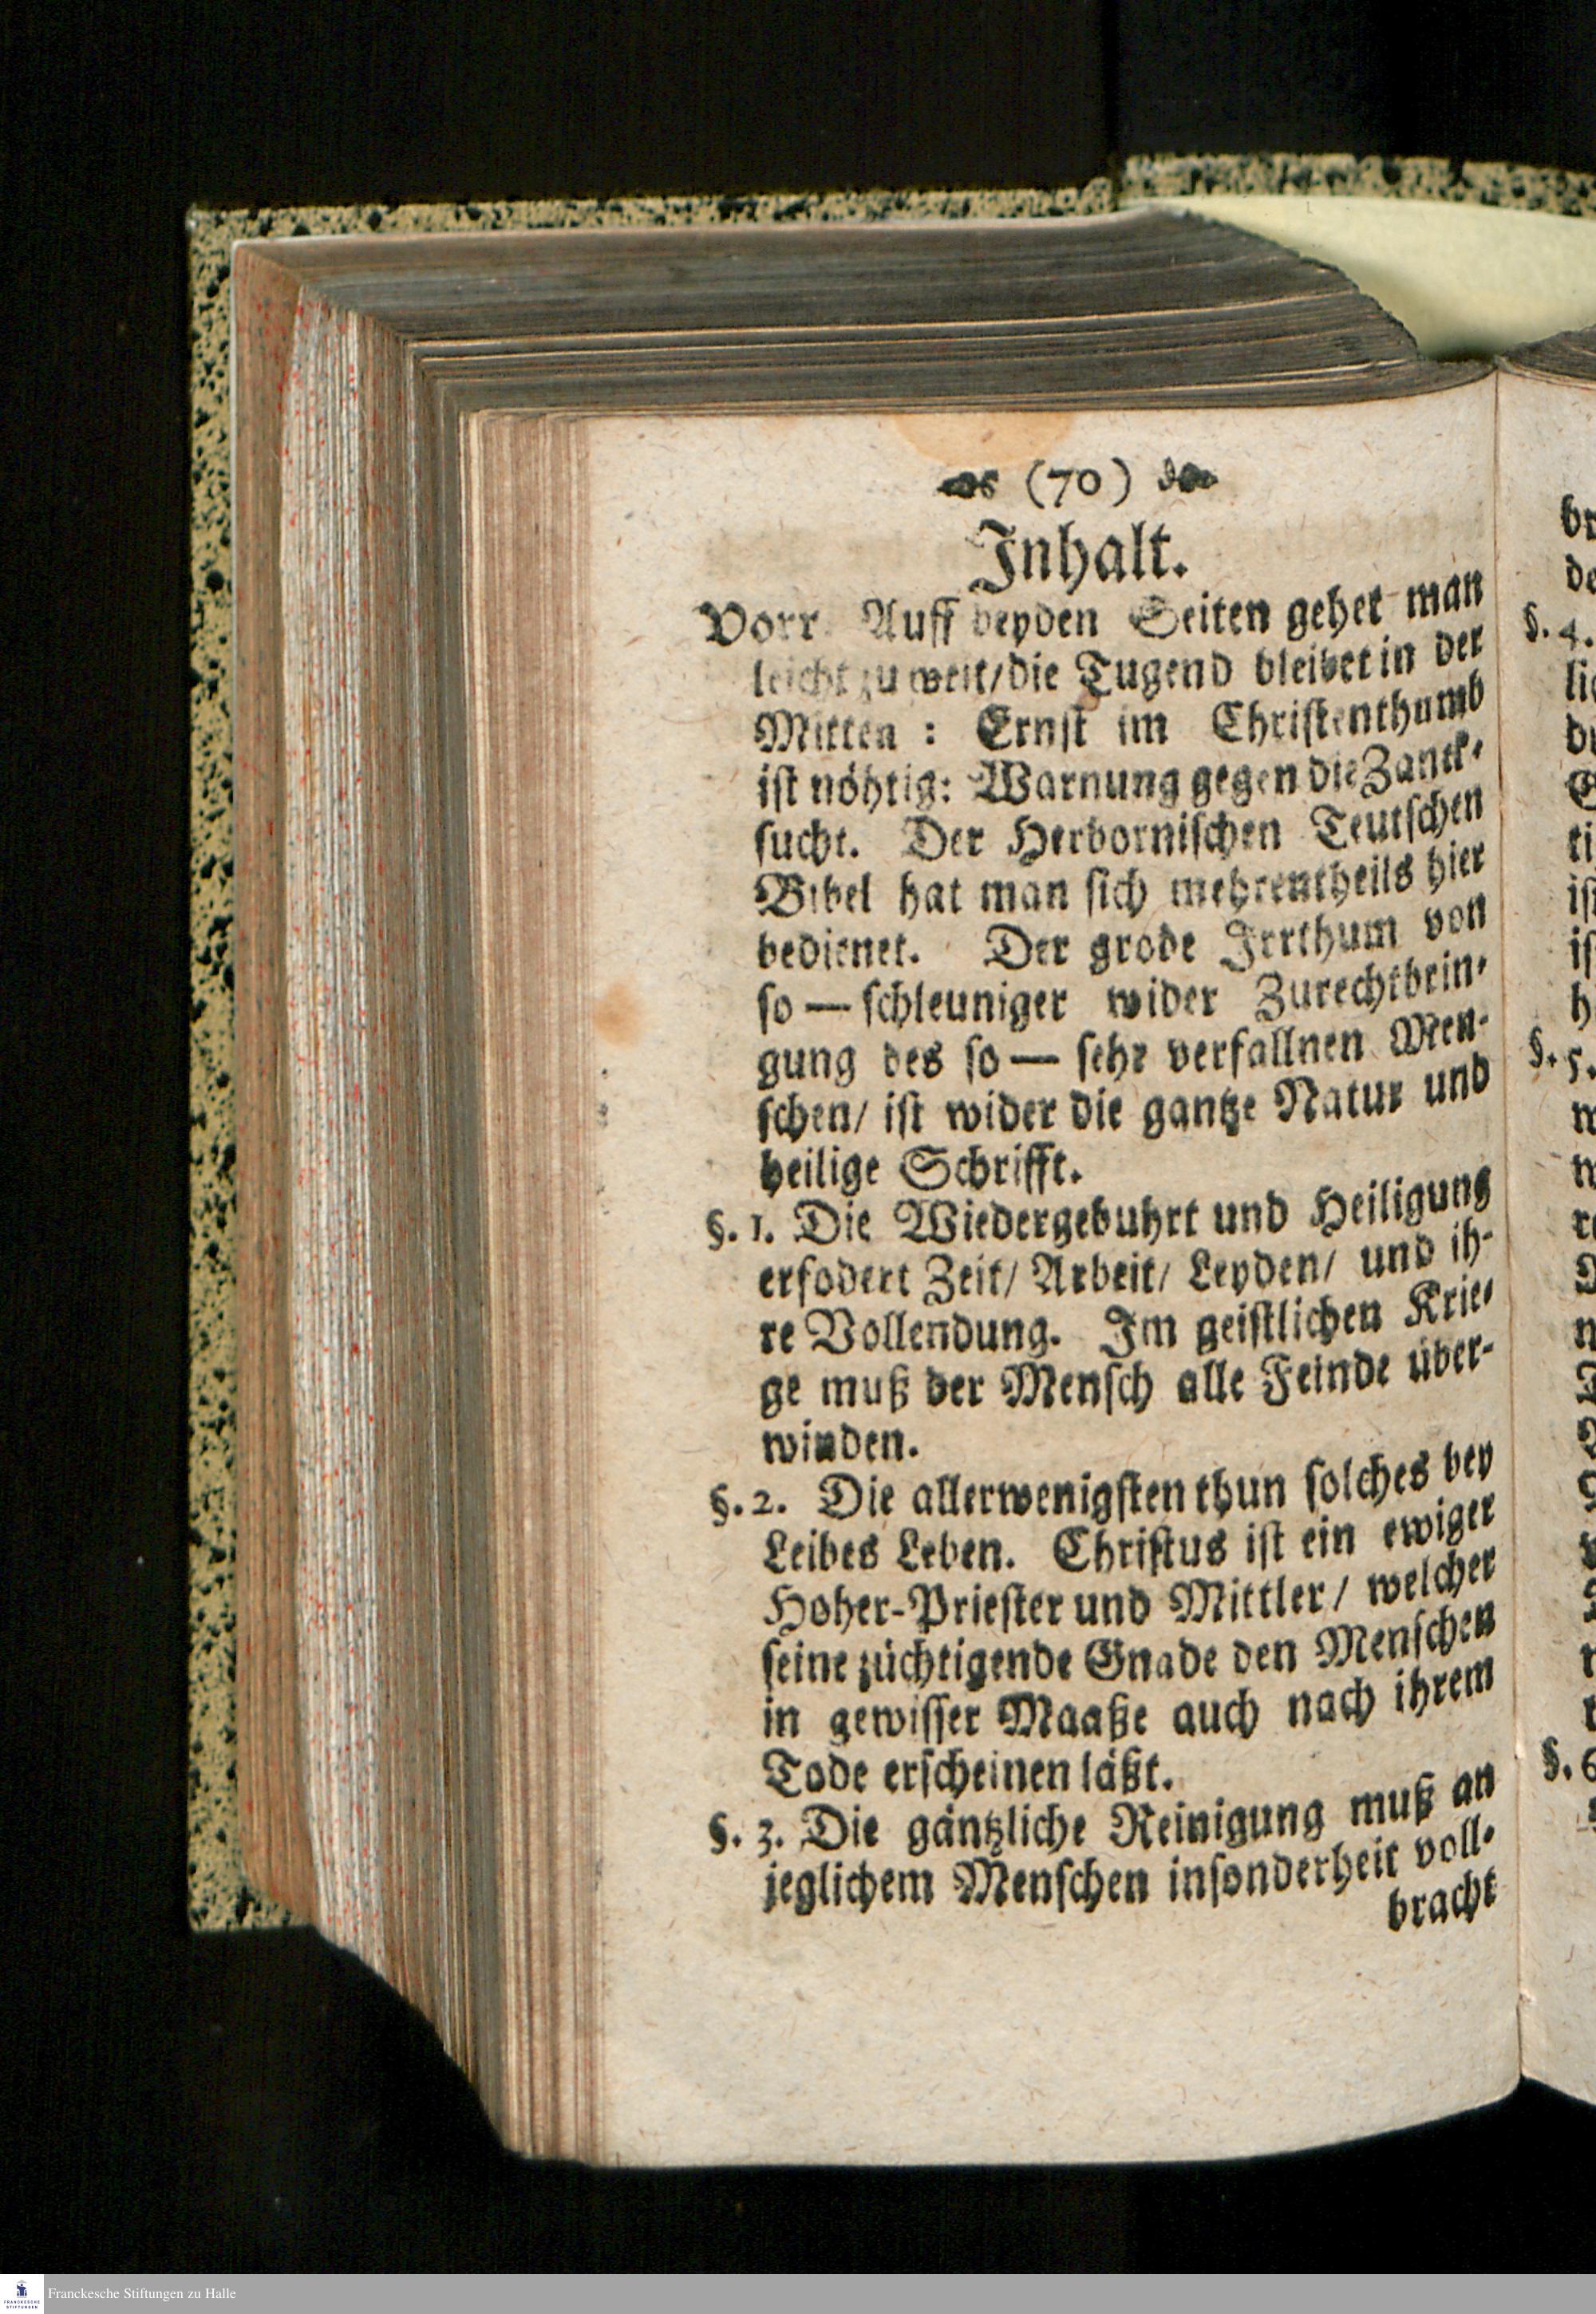 (70)
Inhalt.
Vorr. Auff beyden Seiten gehet man
leicht zu weit/die Tugend bleibet in der
Mitten : Ernst im Christenthumb
ist nöhtig: Warnung gegen die Zanck-
sucht. Der Herbornischen Teutschen
Bibel hat man sich mehrentheils hier
bedienet. Der grobe Irrthum von
so — schleuniger wider Zurechtbrin-
gung des so — sehr verfallnen Men-
schen/ ist wider die gantze Natur und
heilige Schrifft.
§. 1. Die Wiedergebuhrt und Heiligung
erfodert Zeit/ Arbeit/ Leyden/ und ih-
re Vollendung. Im geistlichen Krie-
ge muß der Mensch alle Feinde über-
winden.
§. 2. Die allerwenigsten thun solches bey
Leibes Leben. Christus ist ein ewiger
Hoher-Priester und Mittler/ welcher
seine züchtigende Gnade den Menschen
in gewisser Maaße auch nach ihrem
Tode erscheinen läßt.
§. 3. Die gäntzliche Reinigung muß an
jeglichem Menschen insonderheit voll-
bracht
§. 4.
§. 5.
§. 6
Franckesche Stiftungen zu Halle
FRANCKESCHE
STIFTUNGEN